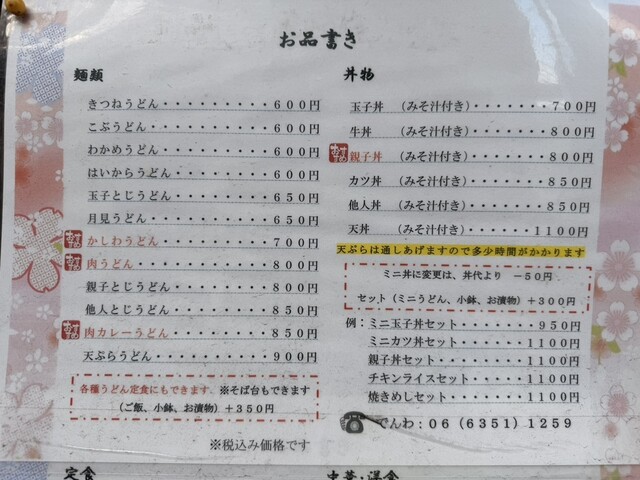 お品書き
麺類
きつねうどん・・・・・・・・・600円
こぶうどん・・・・・・・・・・600円
わかめうどん・・・・・・・・・600円
はいからうどん・・・・・・・・600円
玉子とじうどん・・・・・・・・650円
月見うどん・・・・・・・・・・650円
かしわうどん・・・・・・・・・700円
肉うどん・・・・・・・・・・・800円
親子とじうどん・・・・・・・・800円
他人とじうどん・・・・・・・・850円
肉カレーうどん・・・・・・・・850円
天ぷらうどん・・・・・・・・・900円
各種うどん定食にもできます ※そば台もできます
(ご飯、小鉢、お漬物)+350円
※税込み価格です
丼物
玉子丼 (みそ汁付き)・・・・・・・700円
牛丼 (みそ汁付き)・・・・・・・800円
親子丼 (みそ汁付き)・・・・・・・800円
カツ丼 (みそ汁付き)・・・・・・・850円
他人丼 (みそ汁付き)・・・・・・・850円
天丼 (みそ汁付き)・・・・・・1100円
天ぷらは通しあげますので多少時間がかかります
ミニ丼に変更は、丼代より -50円
セット(ミニうどん、小鉢、お漬物)+300円
例:ミニ玉子丼セット・・・・・・・950円
ミニカツ丼セット・・・・・・1100円
親子丼セット・・・・・・・・1100円
チキンライスセット・・・・・1100円
焼きめしセット・・・・・・・1100円
でんわ:06(6351)1259
定食
中華・洋食